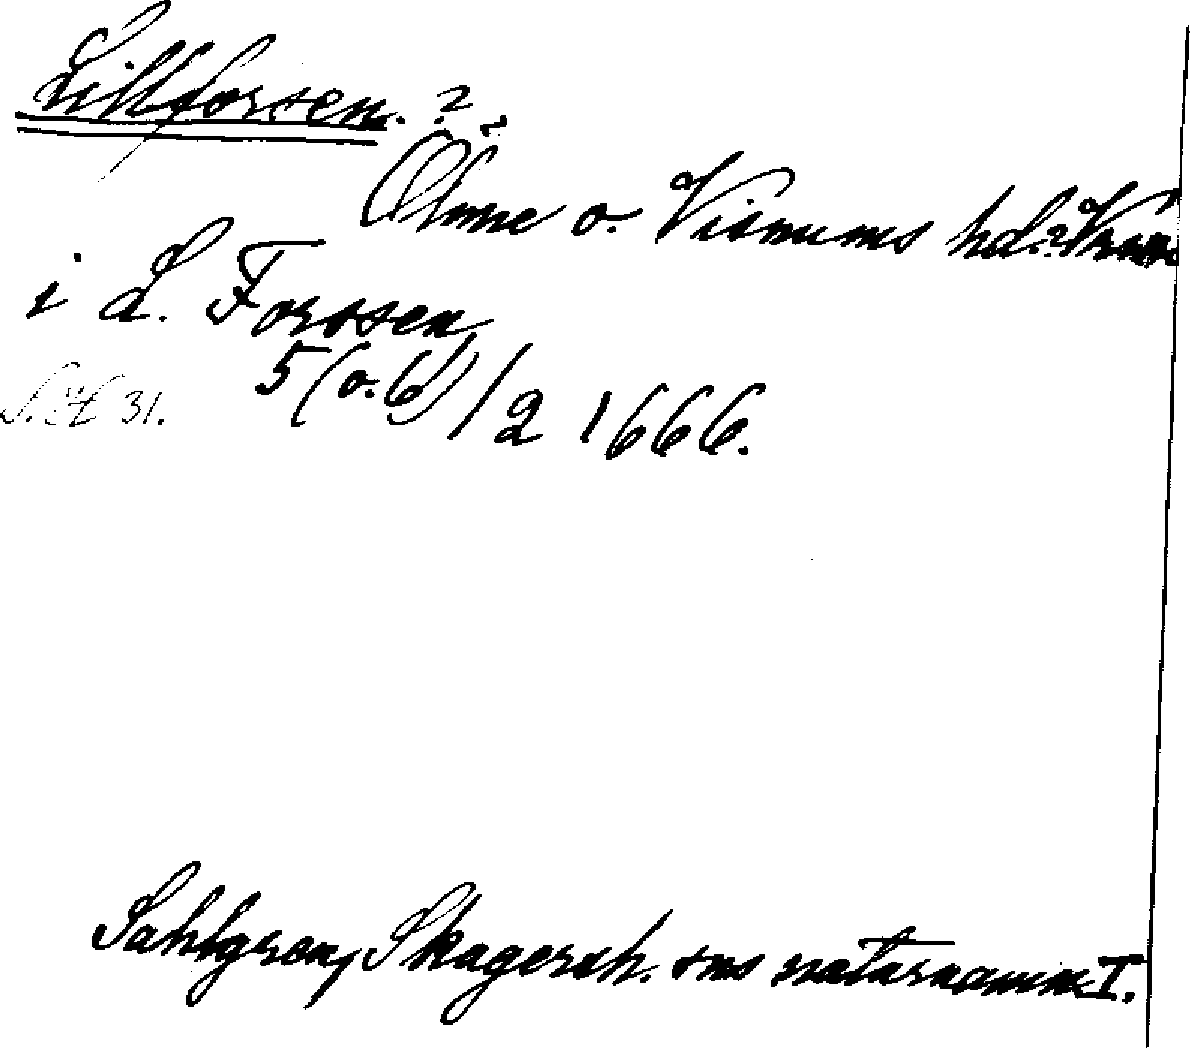 Lillforsen. ?
Ölme o. Visnums hd.?
i L. Forssen
5 (o. 6)/2 1666.
31.
Sahlgren, Skagersh. sns naturnamn I.